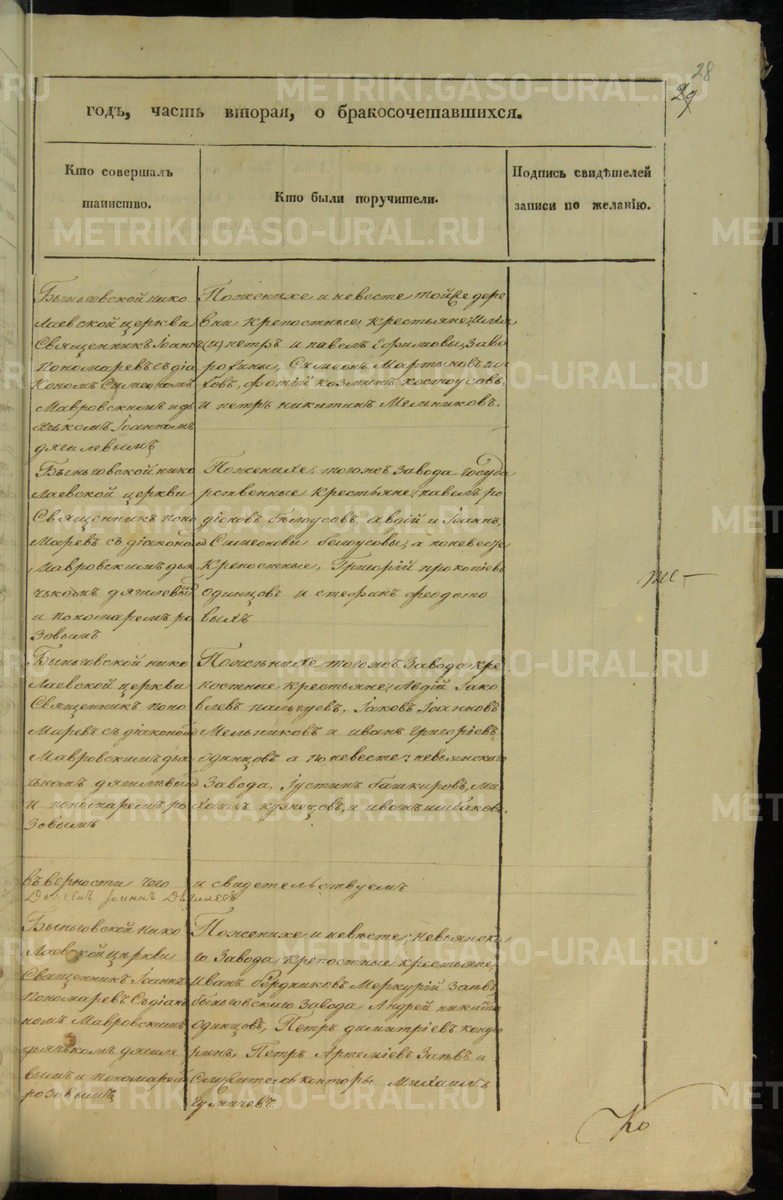 28
29
годъ, часть вторая, о бракосочетавшихся.
Кто совершалъ
таинство.
Кто были поручители.
Подпись свидѣтелей
записи по желанію.
Быньговской нико
лаевской церкви
Священникъ Іоаннъ
Пономаревъ съ діа
кономъ Симеономъ
Мавровскимъ и дья
чькомъ Іоанномъ
дягилевымъ
По женихе и невесте той же дере
вни крепостные крестьяне: Илія
петръ и павелъ Ефимовы, Заво
рохины, Симеонъ Мартыновъ
фотій козминъ костоусовъ,
и петръ никитинъ Мельниковъ.
Быньговской нико
лаевской церкви
Священникъ Поно
маревъ съ діакономъ
Мавровскимъ дья
чькомъ дягилевымъ
и пономаремъ ро
зовымъ
По женихе, тогожъ завода госуда
рственные крестьяне, павелъ ро
діоновъ белоусовъ, авдій и Іоаннъ
Симеоновы белоусовы, а по невесте
крепостные, Григорій прокопіевъ
одинцовъ и стефанъ феодото
выхъ
Быньговской нико
лаевской церкви
Священникъ Поно
маревъ съ діакономъ
Мавровскимъ дья
чькомъ дягилевымъ
и пономаремъ ро
зовымъ
По женихе тогожъ завода кре
постные крестьяне: Авдій Іако
влевъ пальцевъ, Іаковъ Іоанновъ
Мельниковъ и иванъ григоріевъ
одинцовъ а по невесте: невьянскаго
завода, Іустинъ башкировъ, Ми
хаилъ кузнецовъ, и иванъ шибаковъ
въ верности чего и свидетельствуемъ
Дьячекъ Іоаннъ Дягилевъ
Быньговской нико
лаевской церкви
Священникъ Іоаннъ
Пономаревъ съ діако
номъ Мавровскимъ
дьячькомъ дягиле
вымъ и пономаремъ
розовымъ
По женихе и невѣсте; невьянска
го завода крепостные крестьяне,
иванъ бердниковъ Меркурій Заевъ
быньговскаго завода Андрей никитинъ
одинцовъ, Петръ димитріевъ конду
ринъ, Петръ Артеміевъ Заевъ и
Служитель конторы Михаилъ
METRIKI.GASO-URAL.RU